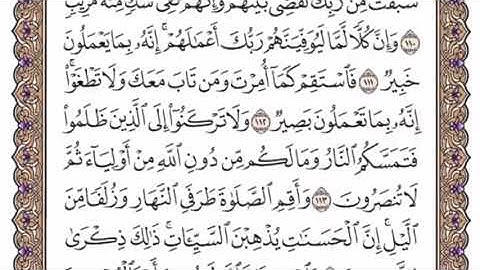 سَبَقَتْ مِن رَّبِّكَ لَقُضِيَ بَيْنَهُمْ وَإِنَّهُمْ لَفِي شَكٍّ مِّنْهُ مُرِيبٍ
١١٠ وَإِنَّ كُلًّا لَّمَّا لَيُوَفِّيَنَّهُمْ رَبُّكَ أَعْمَٰلَهُمْ ۚ إِنَّهُۥ بِمَا يَعْمَلُونَ
خَبِيرٌ ١١١ فَٱسْتَقِمْ كَمَآ أُمِرْتَ وَمَن تَابَ مَعَكَ وَلَا تَطْغَوْا۟ ۚ
إِنَّهُۥ بِمَا تَعْمَلُونَ بَصِيرٌ ١١٢ وَلَا تَرْكَنُوٓا۟ إِلَى ٱلَّذِينَ ظَلَمُوا۟
فَتَمَسَّكُمُ ٱلنَّارُ وَمَا لَكُم مِّن دُونِ ٱللَّهِ مِنْ أَوْلِيَآءَ ثُمَّ
لَا تُنصَرُونَ ١١٣ وَأَقِمِ ٱلصَّلَوٰةَ طَرَفَىِ ٱلنَّهَارِ وَزُلَفًا مِّنَ
ٱلَّيْلِ ۚ إِنَّ ٱلْحَسَنَٰتِ يُذْهِبْنَ ٱلسَّيِّـَٔاتِ ۚ ذَٰلِكَ ذِكْرَىٰ